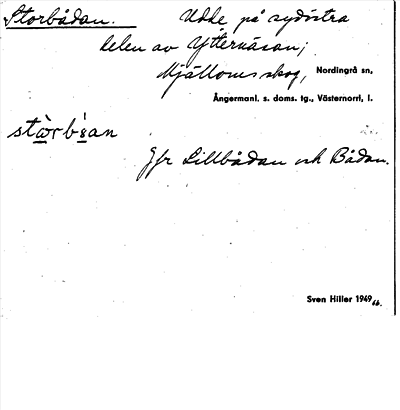 Storbådan. Udde på sydöstra
delen av Ytternäsan;
Mjälloms skog, Nordingrå sn,
Ångermanl. s. doms. tg., Västernorrl. l.
stòrbåan
Jfr Lillbådan och Bådan.
Sven Hiller 1949